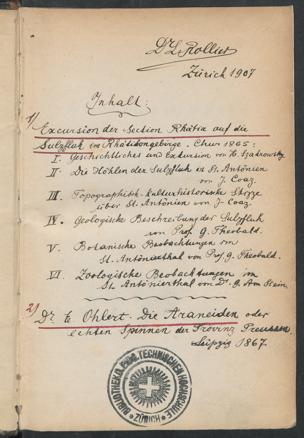 Dr L Rollier
Zürich 1907
Inhalt:
1/ Excursion der Section Rhätia auf die
Sulzfluh im Rhätikongebirge. Chur 1865:
I. Geschichtliches und Exkursion von H. Szadrowsky.
II. Die Höhlen der Sulzfluh in St. Antönien
von J. Coaz.
III. Topographisch-kulturhistorische Skizze
über St. Antönien von J. Coaz.
IV. Geologische Beschreibung der Sulzfluh
von Prof. G. Theobald.
V. Botanische Beobachtungen im
St. Antönierthal von Prof G. Theobald.
VI. Zoologische Beobachtungen im
St. Antönierthal von Dr. G. Am Stein
2) Dr E. Ohlert. Die Araneiden oder
echten Spinnen der Provinz Preussen.
Leipzig 1867.
BIBLIOTHEK EIDG. TECHNISCHEN HOCHSCHULE
ZÜRICH